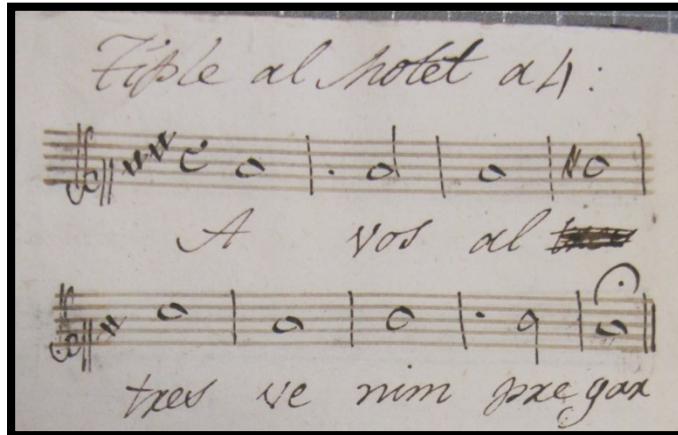 Tiple al Motet a 4:
A vos al
tres ve nim pre gar